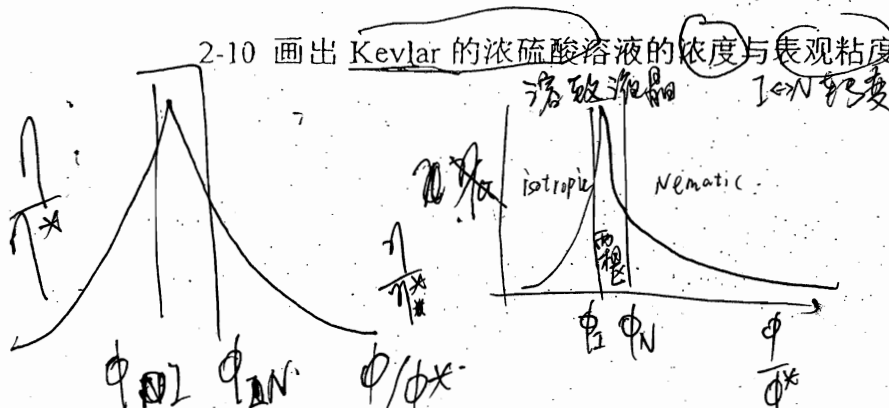 2-10 画出 Kevlar 的浓硫酸溶液的浓度与表观粘度
溶致液晶 I⇔N 转变
η/η*
η/η*
isotropic Nematic.
两相区
ϕI ϕN ϕ/ϕ*
ϕI ϕN ϕ/ϕ*